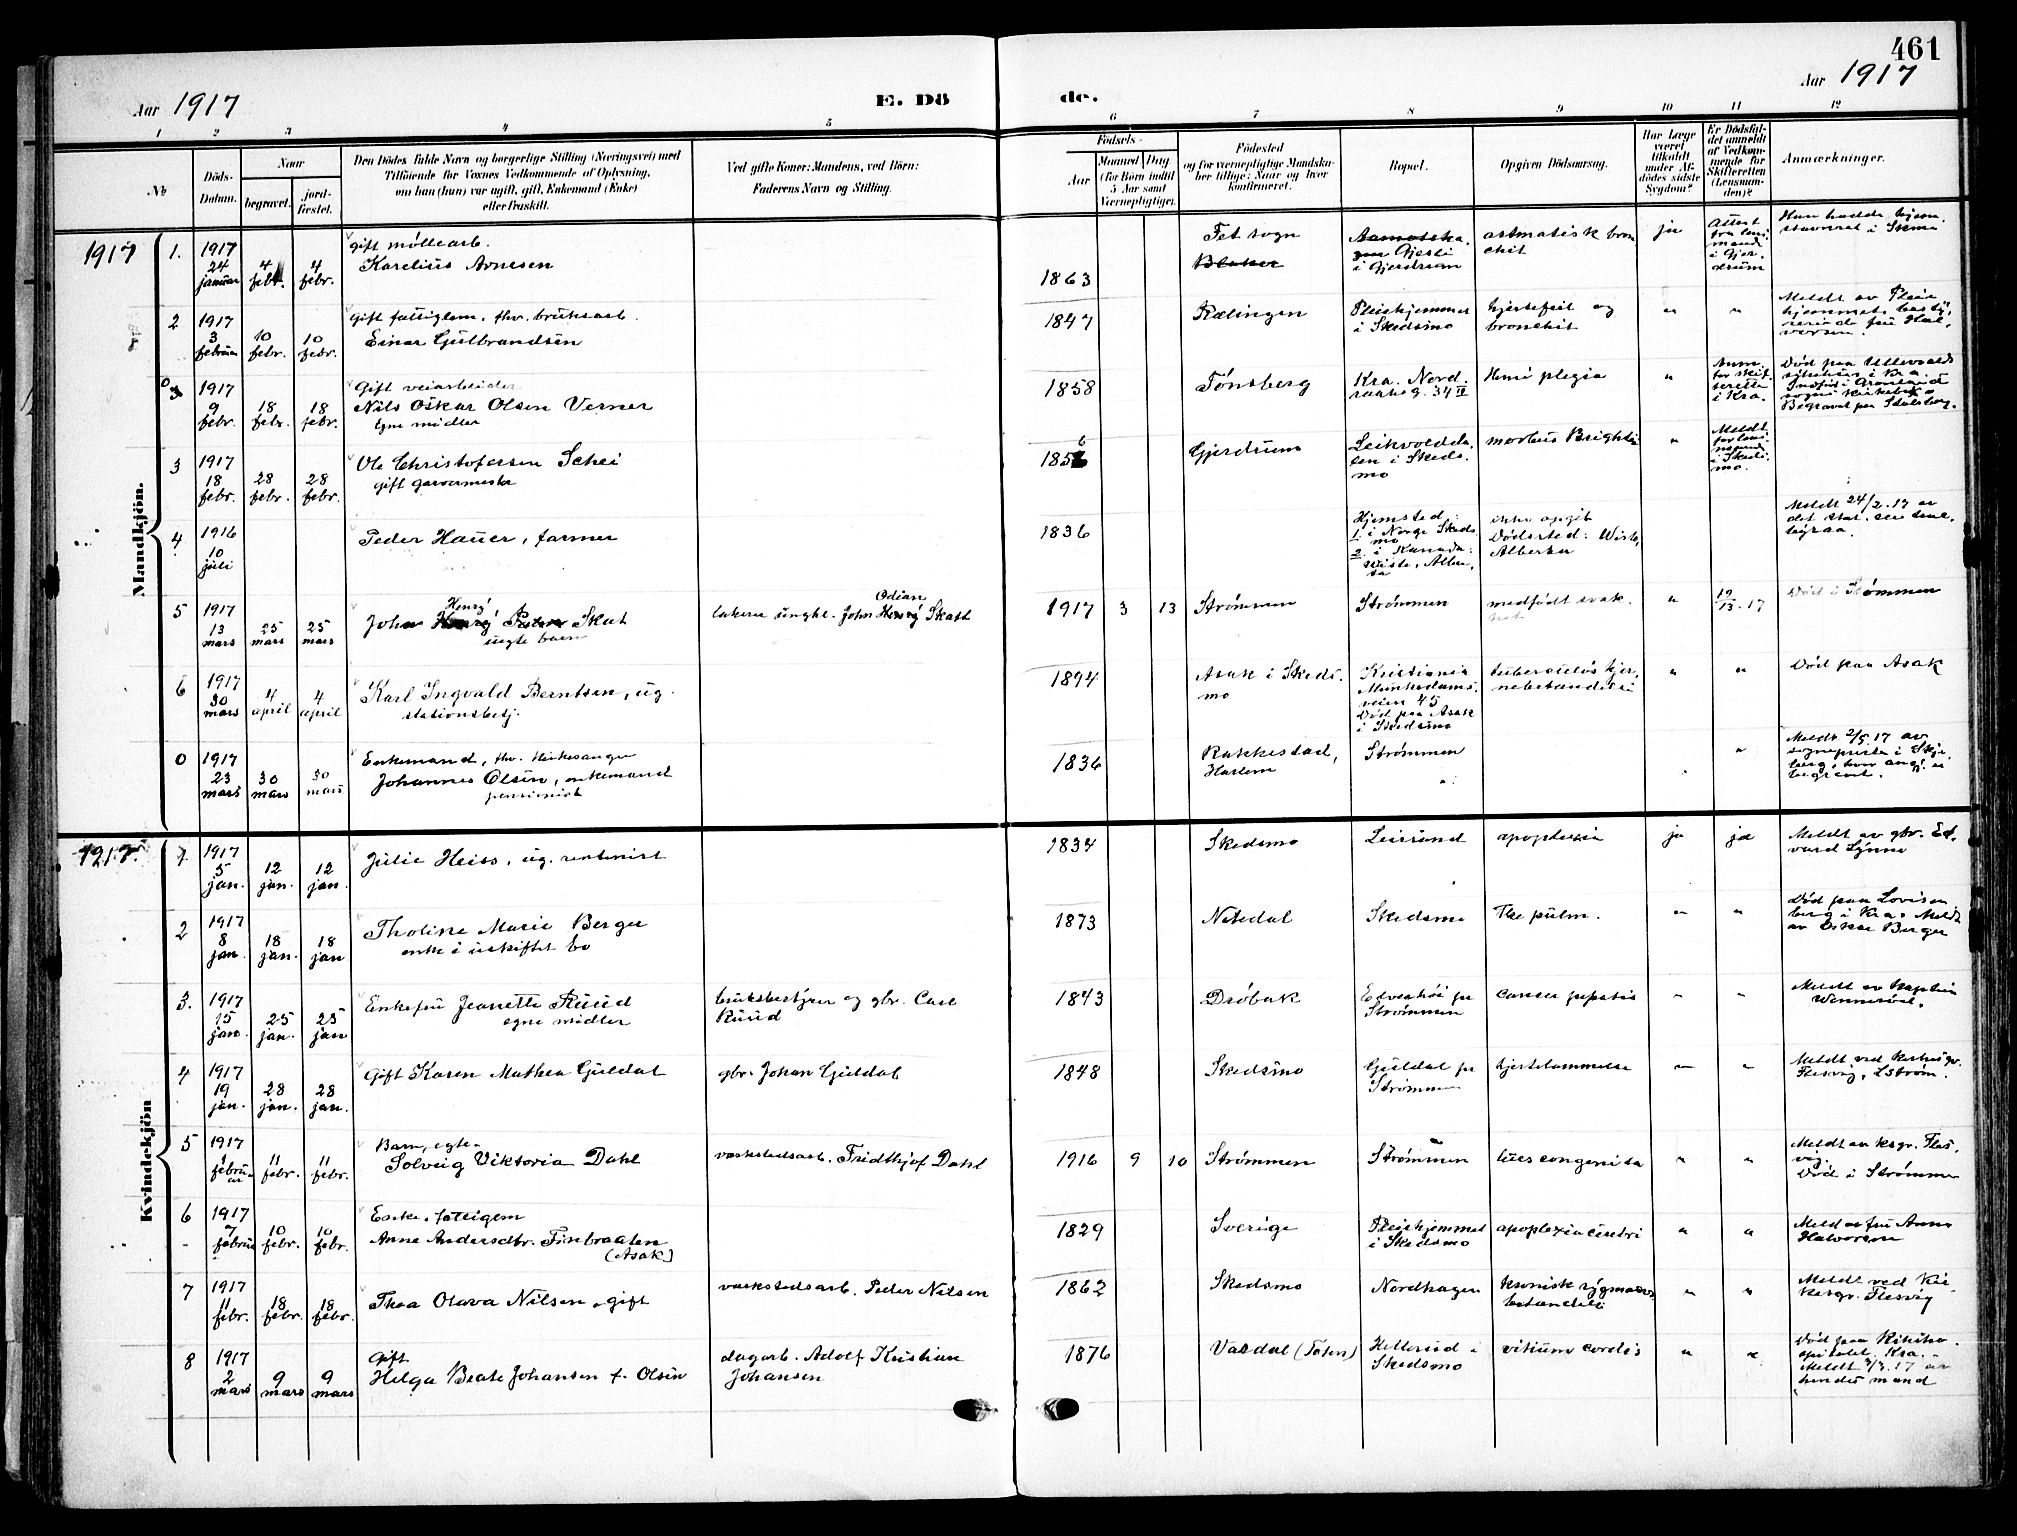 461
Aar 1917
E. Dö
de.
Aar 1917
1 2 3 4 5 6 7 8 9 10 11 12
No
Döds-
Datum.
Naar
begravet.
jord-
fæstet.
Den Dödes fulde Navn og borgerlige Stilling (Næringsvei) med
Tilföiende for Voxnes Vedkommende af Oplysning,
om han (hun) var ugift, gift, Enkemand (Enke)
eller fraskilt.
Ved gifte Koner: Mandens, ved Börn:
Faderens Navn og Stilling.
Födsels-
Aar
Maaned
Dag
(for Börn indtil
5 Aar samt
Værnepligtige).
Födested
og for værnepligtige Mandska-
ber tillige: Naar og hvor
konfirmeret.
Bopæl.
Opgiven Dödsaarsag.
Har Læge
været
tilkaldt
under Af-
dödes sidste
Sygdom?
Er Dödsfal-
det anmeldt
af Vedkom-
mende for
Skifteretten
(Lensman-
den)?
Anmærkninger.
Mandkjön.
1917
1. 1917 24 januar 4 febr. 4 febr.
gift møllearb.
Karelius Arnesen
1863
Fet sogn
Blaker
Gjesti
i Gjerdrum
astmatisk bron
chit
ja
Attest
fra lens
mand
i Gjer
drum
Han hadde hjem
stavnret i Skmo
2 1917 3 februar 10 febr. 10 febr.
gift fattiglem, fhv. bruksarb.
Einar Gulbrandsen
1847
Rælingen
Pleiehjemmet
i Skedsmo
hjertefeil og
bronchit
"
"
Meldt av Pleie
hjemmets besty,
rerinde fru Hal,
vorsen
0 1917 9 febr. 18 febr. 18 febr.
Gift veiarbeider
Nils Oskar Olsen Verner
Egne midler
1858
Tønsberg
Kra. Nord.
raaks g. 34 II
Hemiplegia
"
Anm.
for skif
teretten
i Kra.
Død paa Ullevaalds
sykehus i Kra.
Indført i Grønland
sogns kirkebok
Begravet paa Stalsberg.
3 1917 18 febr. 28 febr. 28 febr.
Ole Christofersen Schei
gift garvermester
1856
Gjerdrum
Leikvoldda,
len i Skeds,
mo
morbus Brightii
"
Meldt
for lens
mand
i Skeds,
mo.
4 1916 10 juli
Peder Hauer, farmer
1836
Hjemsted:
1. i Norge Skeds
mo
2. i Kanada:
Wiste, Alber,
ta
ikke opgit
Dødssted: Wiste,
Alberta
Meldt 24/2. 17 av
det stat. sentral
byraa.
5 1917 13 mars 25 mars 25 mars
Henry
John Skat
uegte barn
Odian
lakerer ungkl. John Henry Skatt
1917 3 13
Strømmen
Strømmen
medfødt svak
het
"
19/3. 17
Død i Strømmen
6 1917 30 mars 4 april 4 april
Karl Ingvald Berntsen, ug.
stationsbetj.
1894
Asak i Skeds,
mo
Kristiania
Munkedams,
veien 45
Død paa Asak
i Skedsmo
tuberculøs hjer,
nebetændelse
"
"
Død paa Asak
0 1917 23 mars 30 mars 30 mars
Enkemand, fhv. kirkesanger
Johannes Olsen, enkemand
pensionist
1836
Rakkestad,
Harlem
Strømmen
"
Meldt 2/5 17 av
sogneprest i Skje
berg, hvor angj. er
begravet.
Kvindekjön
1917
1. 1917 5 jan. 12 jan. 12 jan.
Julie Heiss, ug. rentenist
1834
Skedsmo
Leirsund
apoplexia
ja
ja
Meldt av gbr. Ed,
vard Lynne
2 1917 8 jan. 18 jan. 18 jan
Tholine Marie Berger
enke i uskiftet bo
1873
Nitedal
Skedsmo
Tbc pulm.
"
"
Død paa Lovisen
berg i Kra. Meldt
av Oskar Berger
3. 1917 15 jan. 25 jan. 25 jan
Enkefru Jeanette Ruud
egne midler
bruksbestyrer og gbr. Carl
Ruud
1843
Drøbak
Edveshøi pr
Strømmen
cancer hepatis
"
"
Meldt av kaptein
Wennerød.
4 1917 19 jan. 28 jan. 28 jan.
Gift Karen Mathea Guldal
gbr. Johan Guldal
1848
Skedsmo
Guldal pr
Strømmen
hjertelammelse
"
"
Meldt ved kirkesgr.
Flesvig, LStrøm.
5 1917 1 februar 11 febr. 11 febr.
Barn, egte
Solveig Viktoria Dahl
verkstedsarb. Fridthjof Dahl
1916 9 10
Strømmen
Strømmen
lues congenita
"
"
Meldt av ksgr. Fles,
vig.
Død i Strømmen
6 1917 7 februar 10 febr. 10 febr.
Enke, fattigem
Anne Andersdtr. Finbraaten
(Asak)
1829
Sverige
Pleiehjemmet
i Skedsmo
apoplexia cerebri
"
"
Meld av fru Anna
Halvorsen
7 1917 11 febr. 18 febr. 18 febr.
Thea Olava Nilsen, gift
verkstedsarb. Peder Nilsen
1862
Skedsmo
Nordhagen
kronisk rygmarvs
betændelse
"
"
Meldt ved Kir
kesgr. Flesvig
8 1917 2 mars 9 mars 9 mars
Gift
Helga Beate Johansen f. Olsen
dagarb. Adolf Kristian
Johansen
1876
Vardal (Toten)
Hellerud i
Skedsmo
vitium cordis
"
"
Død paa Rikshos
pitalet, Kra.
Meldt 3/3. 17 av
hendes mand